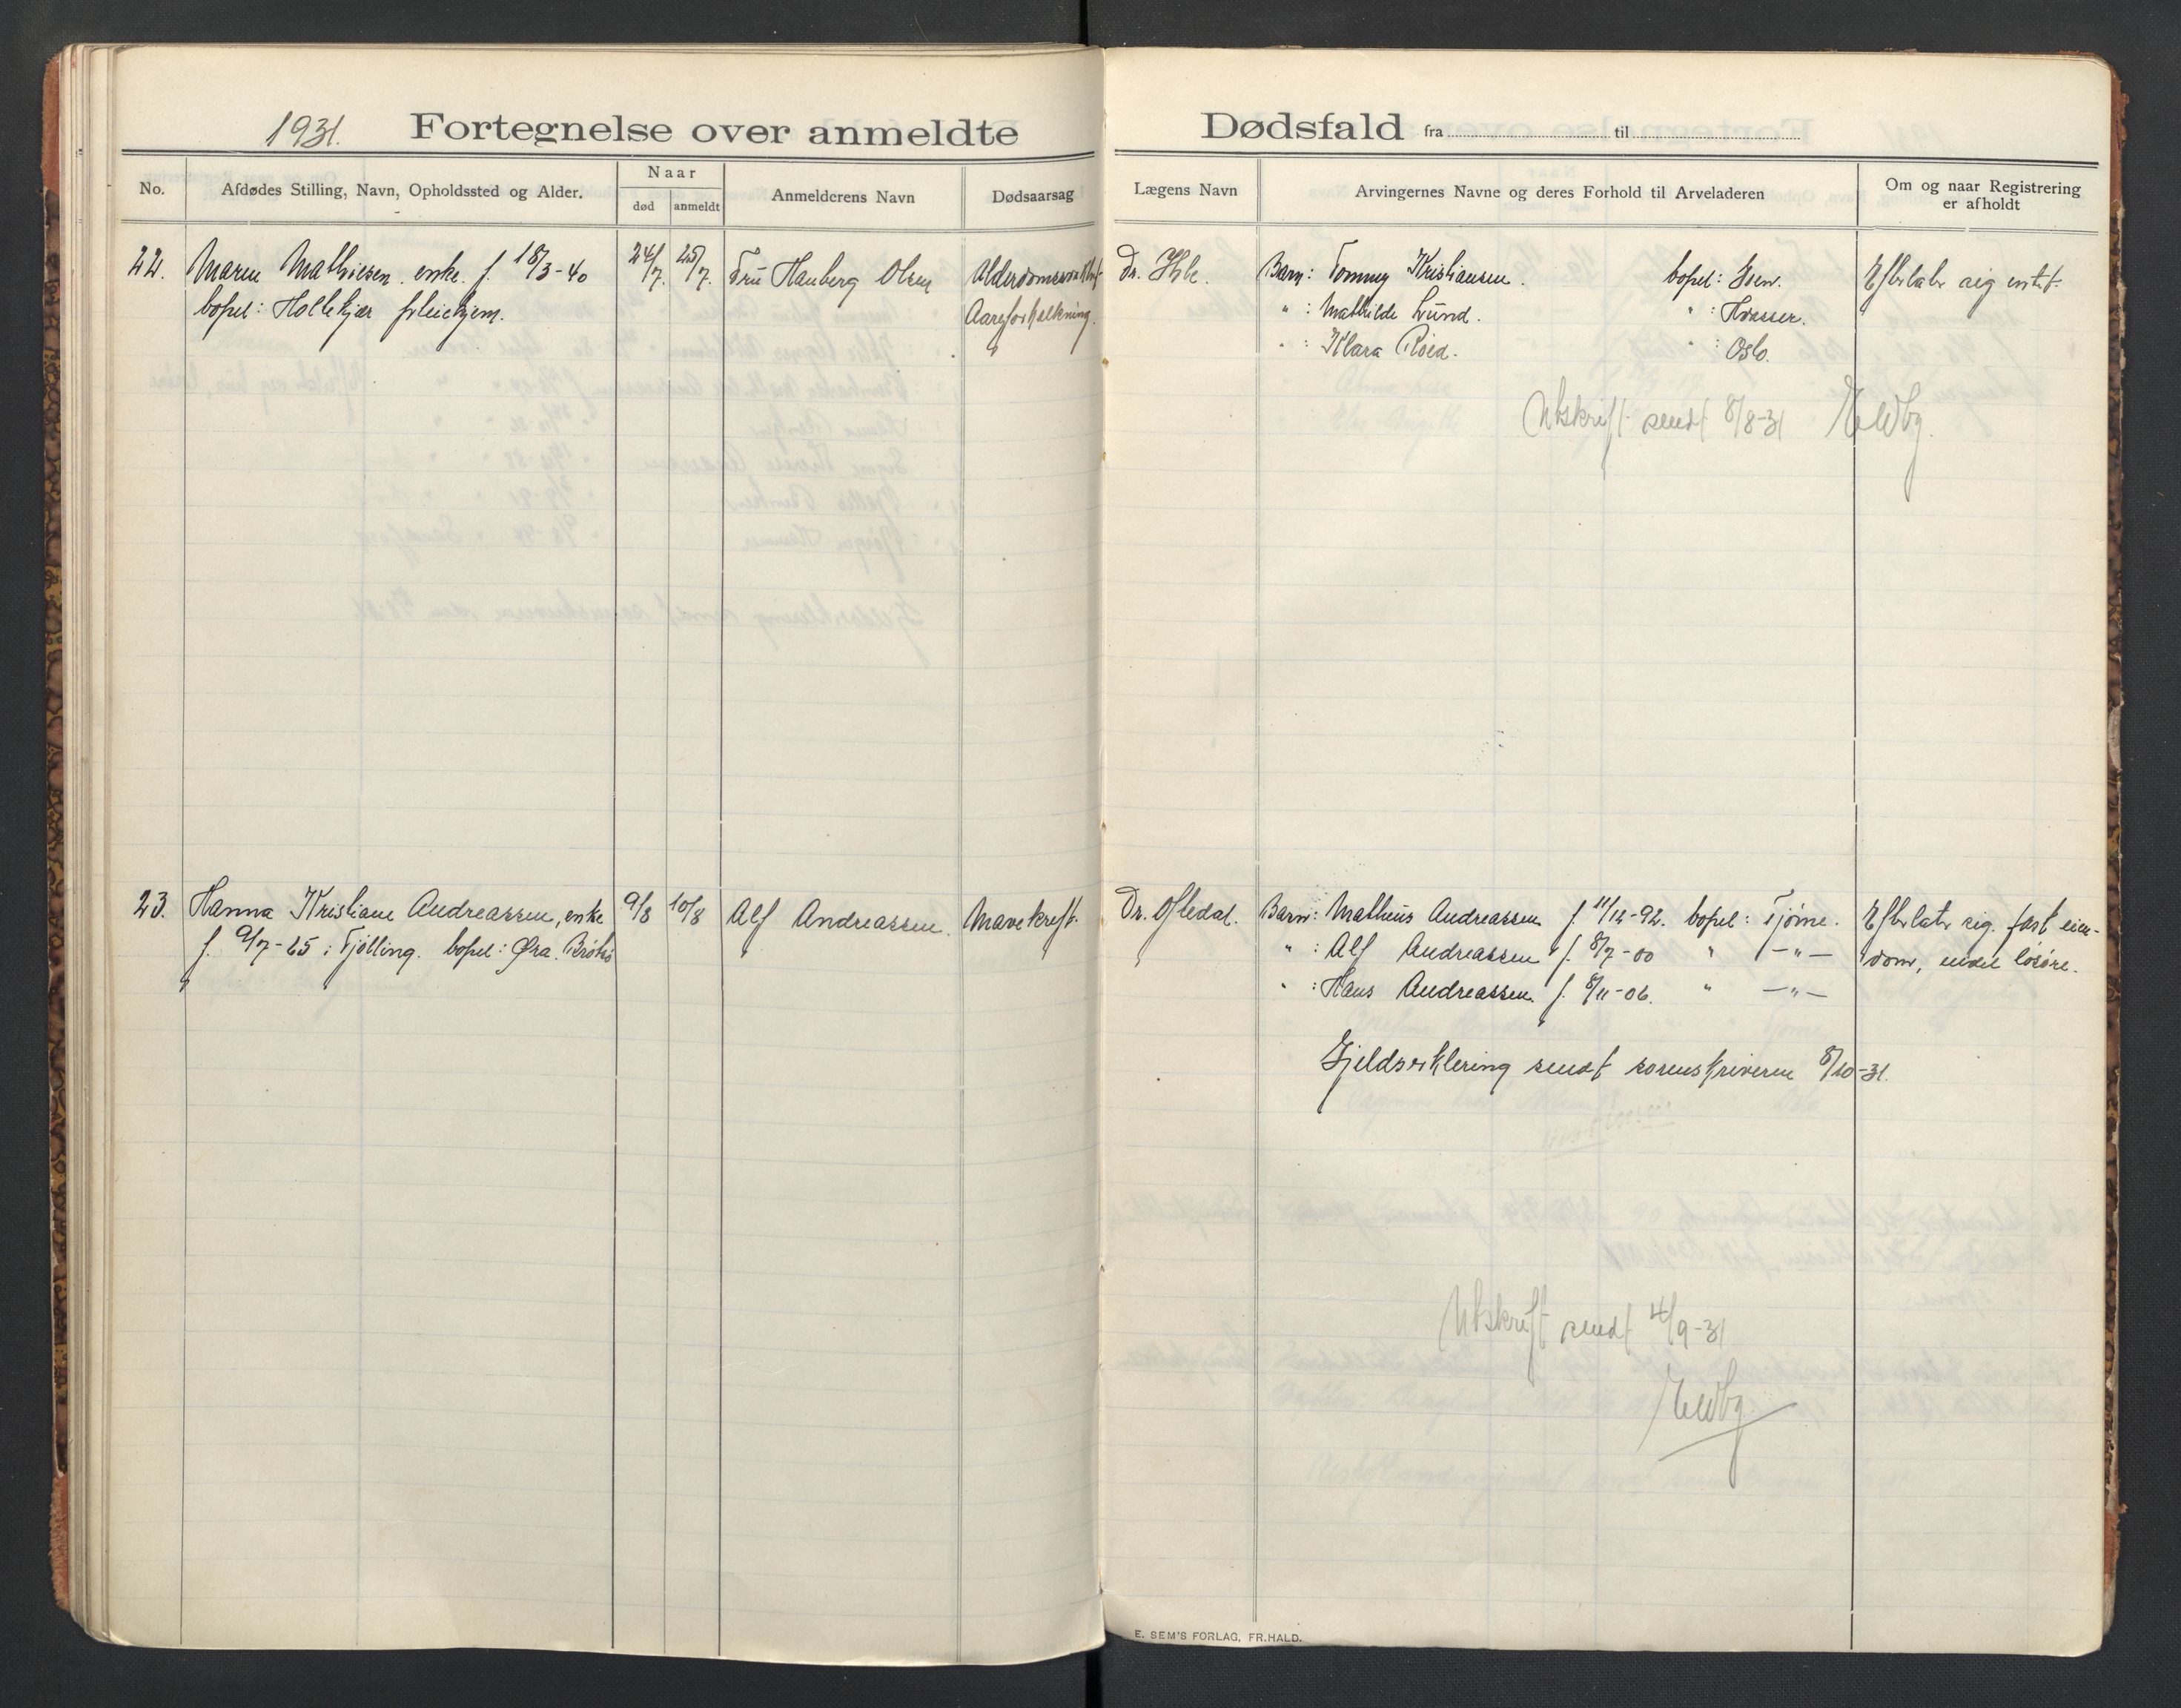 1931. Fortegnelse over anmeldte Dødsfald fra til
No. Afdødes Stilling, Navn, Opholdssted og Alder. Naar død anmeldt Anmelderens Navn Dødsaarsag Lægens Navn Arvingernes Navne og deres Forhold til Arveladeren Om og naar Registrering er afholdt
22. Maren Mathiesen. enke. f. 18/3-40 24/7. 25/7. Fru Hauberg Olsen Dr. Barn: Tommy Kristiansen. bopel: Efterlater sig intet.
bopel: Hollekjær pleiehjem. Aareforkalkning. " : Mathilde Lund. " : Hvasser.
" : Klara Röed. " : Oslo.
Utskrift sendt 8/8-31
23. Hanna Kristiane Andreassen, enke 9/8 10/8 Alf Andreassen. Mavekreft. Dr. Oftedal. Barn: Mathius Andreassen f. 11/12-92. bopel: Tjöme. Efterlater sig fast eien-
f. 9/7-65 i Tjölling. bopel: Øra. Brötsö " : Alf Andreassen f. 8/7-00 " -"- dom, endel lösöre.
" : Hans Andreassen. f. 8/11-06. " -"-
Gjeldserklering sendt sorenskriveren 8/10-31.
Utskrift sendt 4/9-31
E. SEM'S FORLAG, FR.HALD.